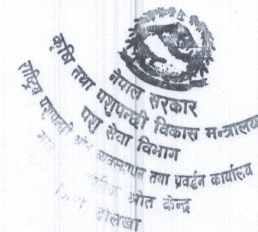 नेपाल सरकार
कृषि तथा पशुपन्छी विकास मन्त्रालय
पशु सेवा विभाग
राष्ट्रिय पशुपन्छी व्यवस्थापन तथा प्रवर्द्धन कार्यालय
श्रोत केन्द्र
दोलखा